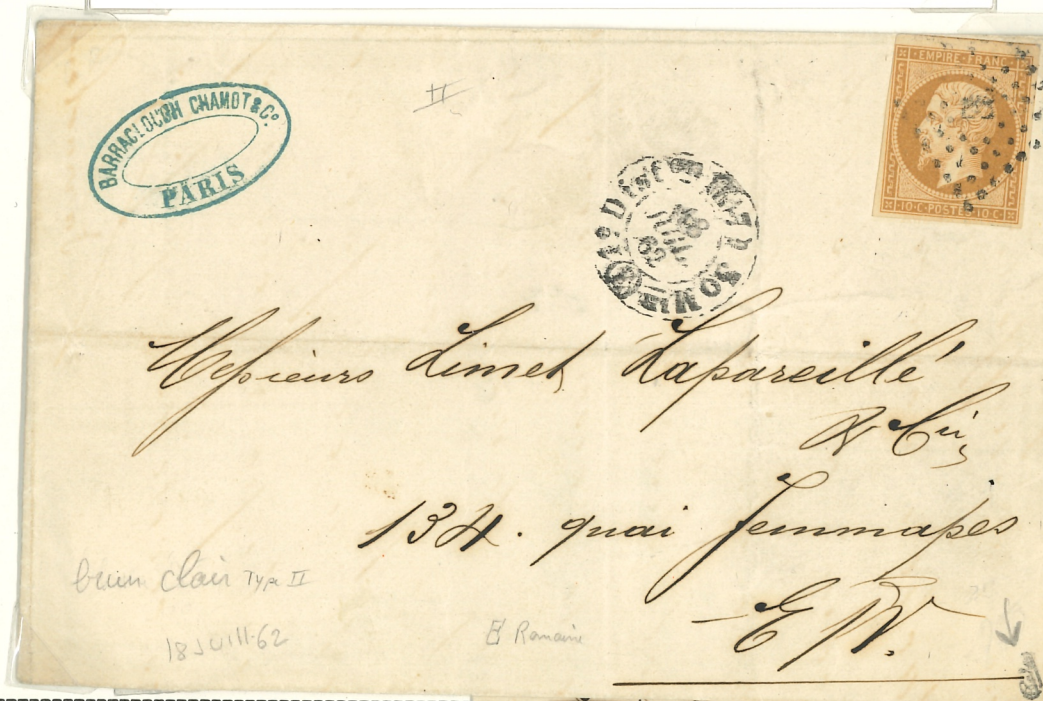 BARRACLOUGH CHAMOT & Cº
PARIS
II
EMPIRE FRANC
10 C POSTES 10 C
1º Diston
30 Min
62
Messieurs Limet Lapareillé
& Cie
134. quai Jemmapes
E/V.
brun clair Type II
18 JUILL 62